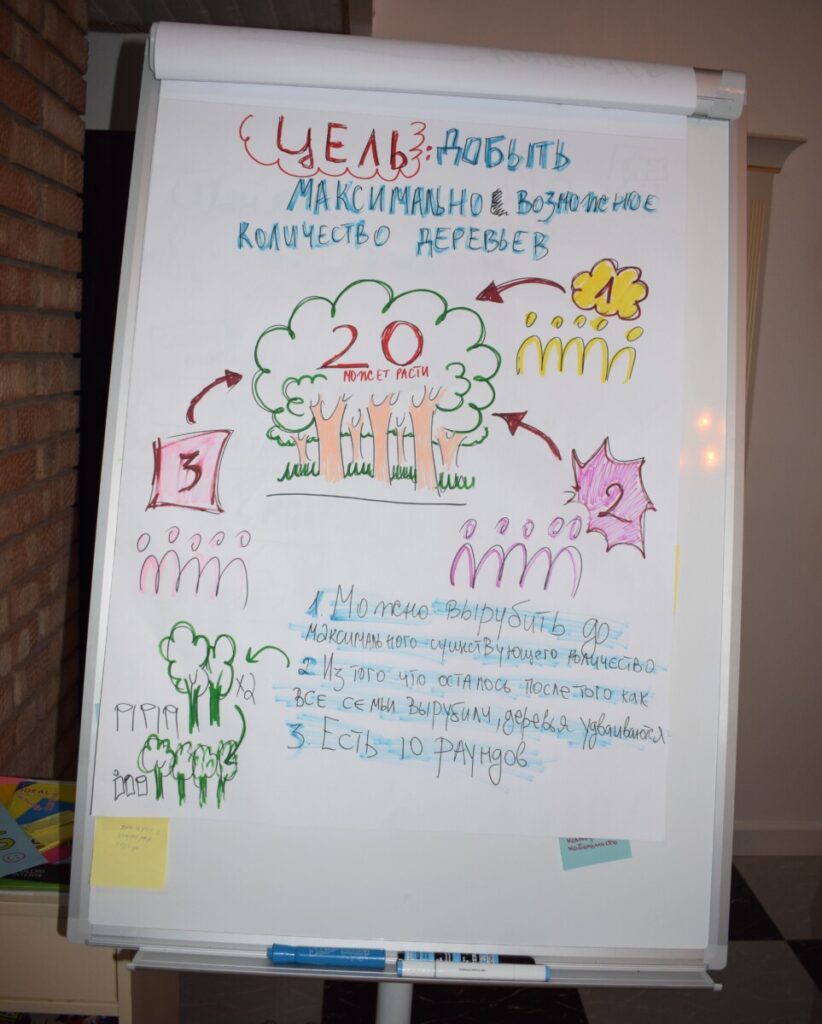 ЦЕЛЬ: ДОБЫТЬ
МАКСИМАЛЬНО ВОЗМОЖНОЕ
КОЛИЧЕСТВО ДЕРЕВЬЕВ
1
20
МОЖЕТ РАСТИ
3
2
1. Можно вырубить до
максимального существующего количество
2 Из того что осталось после того как
все семьи вырубили, деревья удваиваются
3. Есть 10 раундов
X2